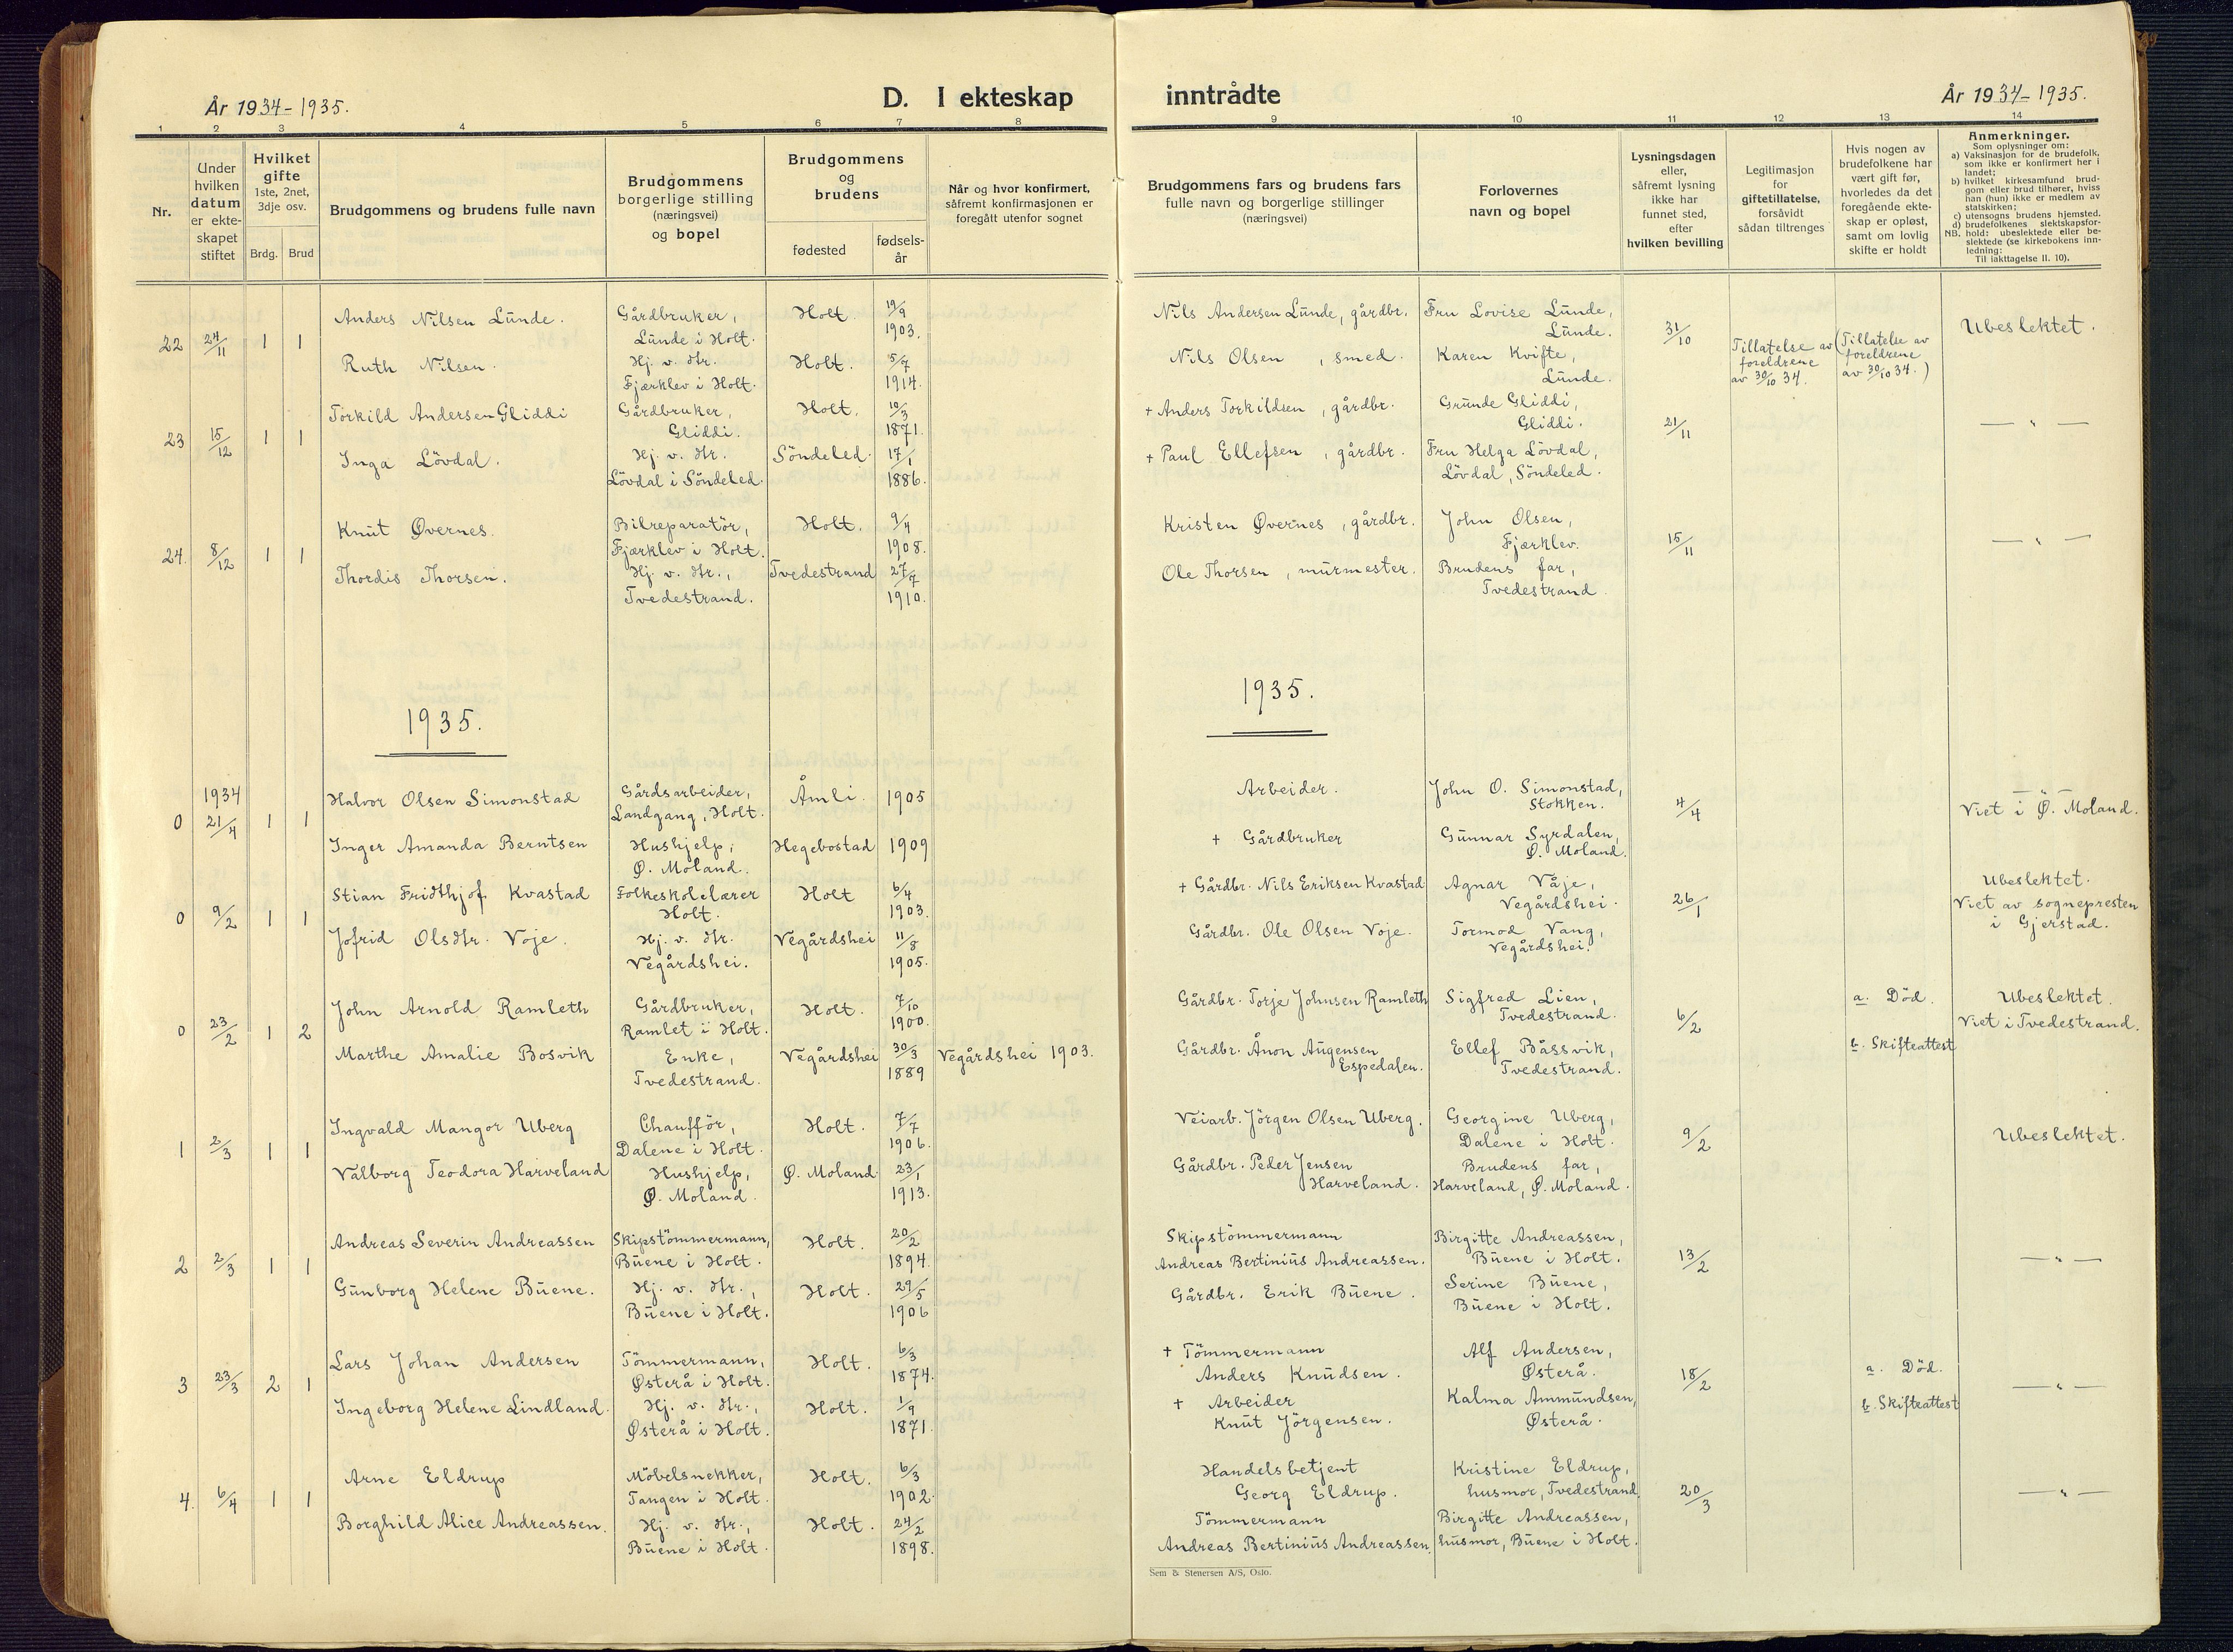 År 1934-1935.
D. I ekteskap
inntrådte
År 1934-1935.
1 2 3 4 5 6 7 8
9 10 11 12 13 14
Nr.
Under
hvilken
datum
er ekte-
skapet
stiftet
Hvilket
gifte
1ste, 2net,
3dje osv.
Brdg. Brud
Brudgommens og brudens fulle navn
Brudgommens
borgerlige stilling
(næringsvei)
og bopel
Brudgommens
og
brudens
fødested
fødsels-
år
Når og hvor konfirmert,
såfremt konfirmasjonen er
foregått utenfor sognet
Brudgommens fars og brudens fars
fulle navn og borgerlige stillinger
(næringsvei)
Forlovernes
navn og bopel
Lysningsdagen
eller,
såfremt lysning
ikke har
funnet sted,
efter
hvilken bevilling
Legitimasjon
for
giftetillatelse,
forsåvidt
sådan tiltrenges
Hvis nogen av
brudefolkene har
vært gift før,
hvorledes da det
foregående ekte-
skap er opløst,
samt om lovlig
skifte er holdt
Anmerkninger.
Som oplysninger om:
a) Vaksinasjon for de brudefolk,
som ikke er konfirmert her i
landet;
b) hvilket kirkesamfund brud-
gom eller brud tilhører, hviss
han (hun) ikke er medlem av
statskirken;
c) utensogns brudens hjemsted.
d) brudefolkenes slektskapsfor-
NB. hold: ubeslektede eller be-
slektede (se kirkebokens inn-
ledning:
Til iakttagelse II. 10).
22 24/11 1 1
Anders Nilsen Lunde.
Gårdbruker,
Lunde i Holt.
Holt.
19/9
1903.
Nils Andersen Lunde, gårdbr.
Fru Lovise Lunde,
Lunde.
31/10
Tillatelse av
foreldrene
av 30/10 34.
(Tillatelse av
foreldrene
av 30/10 34.)
Ubeslektet.
Ruth Nilsen.
Hj. v. dtr.
Fjærklev i Holt.
Holt.
5/7
1914.
Nils Olsen, smed.
Karen Kvifte,
Lunde.
23 15/12 1 1
Torkild Andersen Gliddi
Gårdbruker,
Gliddi.
Holt.
10/3
1871.
+ Anders Torkildsen, gårdbr.
Grunde Gliddi,
Gliddi.
21/11
— " —
Inga Lövdal.
Hj. v. dtr.
Lövdal i Söndeled.
Söndeled.
17/1
1886.
+ Paul Ellefsen, gårdbr.
Fru Helga Lövdal,
Lövdal, Söndeled.
24. 8/12 1 1
Knut Øvernes.
Bilreparatör,
Fjærklev i Holt.
Holt.
9/4
1908.
Kristen Øvernes, gårdbr.
John Olsen,
Fjærklev.
15/11
— " —
Thordis Thorsen.
Hj. v. dtr.,
Tvedestrand.
Tvedestrand
27/7
1910.
Ole Thorsen, murmester.
Brudens far,
Tvedestrand
1935.
1935.
0 1934
21/4 1 1
Halvor Olsen Simonstad
Gårdsarbeider,
Landgang, Holt.
Åmli. 1905
Arbeider.
John O. Simonstad,
Stokken.
4/4
— " —
Viet i Ø. Moland.
Inger Amanda Berntsen
Hushjelp,
Ø. Moland.
Hegebostad 1909
+ Gårdbruker
Gunnar Syrdalen,
Ø. Moland.
0 9/2 1 1
Stian Fridthjof Kvastad
Folkeskolelærer
Holt.
Holt
6/4
1903.
+ Gårdbr. Nils Eriksen Kvastad
Agnar Våje,
Vegårdshei.
26/1
Ubeslektet.
Viet av sognepresten
i Gjerstad.
Jofrid Olsdtr. Voje.
Hj. v. dtr.
Vegårdshei.
Vegårdshei
11/8
1905.
Gårdbr. Ole Olsen Voje.
Tormod Vang,
Vegårdshei.
0 23/2 1 2
John Arnold Ramleth
Gårdbruker,
Ramlet i Holt.
Holt.
7/10
1900.
Gårdbr. Torje Johnsen Ramleth
Sigfred Lien,
Tvedestrand.
6/2
a. Död.
Ubeslektet.
Viet i Tvedestrand.
Marthe Amalie Bosvik
Enke,
Tvedestrand.
Vegårdshei
30/3
1889
Vegårdshei 1903.
Gårdbr. Ånon Augensen
Espedalen.
Ellef Båssvik,
Tvedestrand.
b. Skifteattest
1 2/3 1 1
Ingvald Mangor Uberg
Chaufför,
Dalene i Holt.
Holt.
7/7
1906.
Veiarb. Jörgen Olsen Uberg.
Georgine Uberg,
Dalene i Holt.
9/2
Ubeslektet.
Valborg Teodora Harveland
Hushjelp,
Ø. Moland.
Ø. Moland
23/1
1913.
Gårdbr. Peder Jensen
Harveland.
Brudens far,
Harveland, Ø. Moland.
2 2/3 1 1
Andreas Severin Andreassen
Skipstömmermann,
Buene i Holt.
Holt.
20/2
1894.
Skipstömmermann
Andreas Bertinius Andreassen.
Birgitte Andreassen,
Buene i Holt.
13/2
— " —
Gunborg Helene Buene.
Hj. v. dtr.,
Buene i Holt.
Holt.
29/5
1906
Gårdbr. Erik Buene.
Serine Buene,
Buene i Holt.
3 23/3 2 1
Lars Johan Andersen
Tömmermann,
Østerå i Holt.
Holt.
6/3
1874.
+ Tömmermann
Anders Knudsen.
Alf Andersen,
Østerå.
18/2
a. Död.
— " —
Ingeborg Helene Lindland.
Hj. v. dtr.,
Østerå i Holt.
Holt.
1/9
1871.
+ Arbeider
Knut Jörgensen.
Kalma Ammundsen,
Østerå.
b. Skifteattest
4. 6/4 1 1
Arne Eldrup
Möbelsnekker,
Tangen i Holt.
Holt.
6/3
1902.
Handelsbetjent
Georg Eldrup.
Kristine Eldrup,
husmor, Tvedestrand.
20/3
— " —
Borghild Alice Andreassen.
Hj. v. dtr.,
Buene i Holt.
Holt.
24/2
1898.
Tömmermann
Andreas Bertinius Andreassen.
Birgitte Andreassen,
husmor, Buene i Holt.
Sem & Stenersen A/S, Oslo.